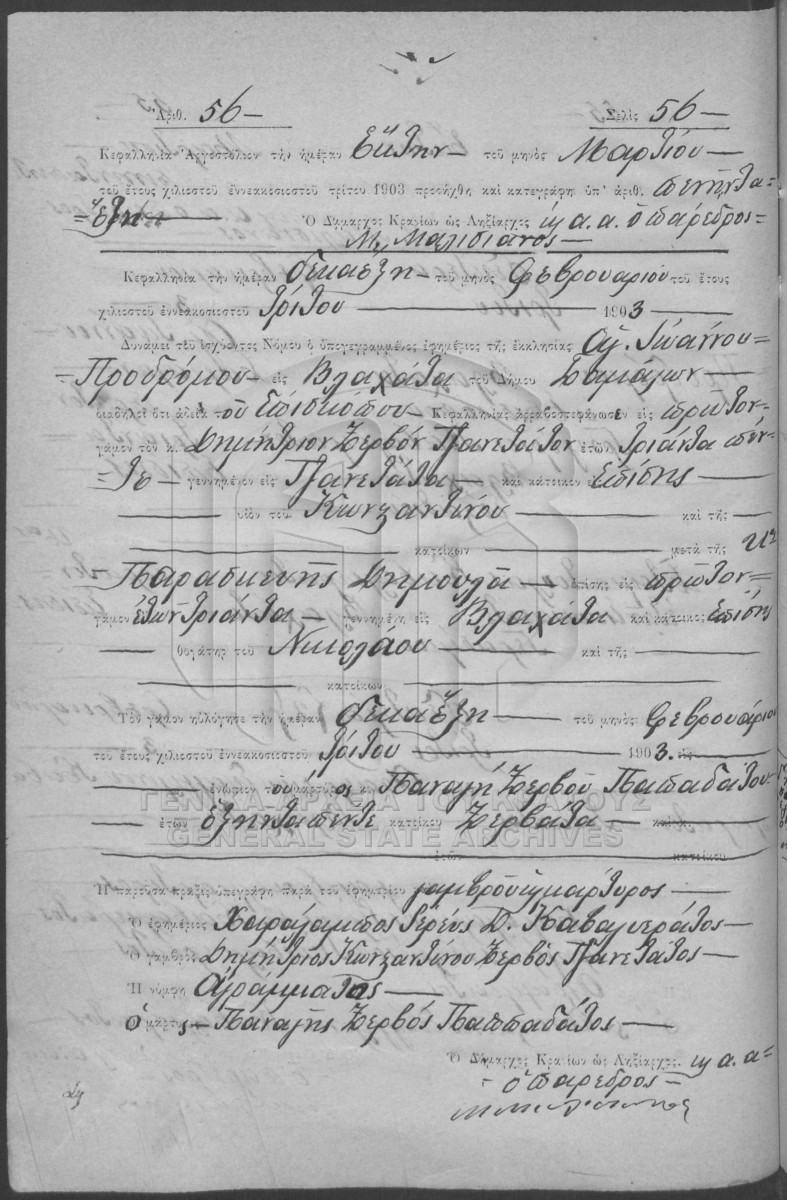 Ἀριθ. 56 — Σελὶς 56 —
Κεφαλληνία Ἀργοστόλιον τὴν ἡμέραν Ἕκτην — τοῦ μηνὸς Μαρτίου —
τοῦ ἔτους χιλιοστοῦ ἐννεακοσιοστοῦ τρίτου 1903 προσήχθη καὶ κατεγράφη ὑπ' ἀριθ. πενῆντα=
=ἕξη — Ὁ Δήμαρχος Κρανίων ὡς Ληξίαρχος κ α. α. ὁ πάρεδρος=
Μ. Μαλιδιανός —
Κεφαλληνία τὴν ἡμέραν δεκαέξη — τοῦ μηνὸς Φεβρουαρίου τοῦ ἔτους
χιλιοστοῦ ἐννεακοσιοστοῦ Τρίτου — 1903 —
Δυνάμει τοῦ ἰσχύοντος Νόμου ὁ ὑπογεγραμμένος ἐφημέριος τῆς ἐκκλησίας Ἁγ. Ἰωάννου=
=Προδρόμου — εἰς Βλαχάτα τοῦ Δήμου Σαμαίων —
διαδηλοῖ ὅτι ἀδείᾳ τοῦ Ἐπισκόπου — Κεφαλληνίας ἀρραβωστεφάνωσεν εἰς πρῶτον=
γάμον τὸν κ. Δημήτριον Ζερβὸν Τζανετάτον ἐτῶν Τριάντα πέν=
=τε — γεννημένον εἰς Τζανετάτα — καὶ κάτοικον Ἐπίσης —
— υἱὸν τοῦ Κωνσταντίνου — καὶ τῆς —
— κατοίκων — μετὰ τῆς
— Παρασκευῆς Δημουλᾶ — ἐπίσης εἰς πρῶτον=
γάμον ἐτῶν Τριάντα — γεννημένη εἰς Βλαχάτα καὶ κάτοικος Ἐπίσης
— θυγάτηρ τοῦ Νικολάου — καὶ τῆς —
— κατοίκων —
Τὸν γάμον ηὐλόγησε τὴν ἡμέραν δεκαέξη — τοῦ μηνὸς Φεβρουαρίου
τοῦ ἔτους χιλιοστοῦ ἐννεακοσιοστοῦ Τρίτου — 1903. —
— ἐνώπιον τοῦ μάρτυρος κ. Παναγῆ Ζερβοῦ Παπαδάτου —
ΓΕΝΙΚΑ ΑΡΧΕΙΑ ΤΟΥ ΚΡΑΤΟΥΣ
— ἐτῶν ἑξήντα πέντε κατοίκου Ζερβάτα — καὶ κ.
GENERAL STATE ARCHIVES
— ἐτῶν — κατοίκου —
Ἡ παροῦσα πρᾶξις ὑπεγράφη παρὰ τοῦ ἐφημερίου γαμβροῦ κ μάρτυρος —
Ὁ ἐφημέριος Χαράλαμπος Ἱερεὺς Δ. Καβαλιεράτος —
Ὁ γαμβρὸς Δημήτριος Κωνσταντίνου Ζερβὸς Τζανετάτος —
Ἡ νύμφη Ἀγράμματος —
ὁ μάρτυς — Παναγῆς Ζερβὸς Παππαδάτος —
Ὁ Δήμαρχος Κρανίων ὡς Ληξίαρχος. κ α. α=
— ὁ πάρεδρος —